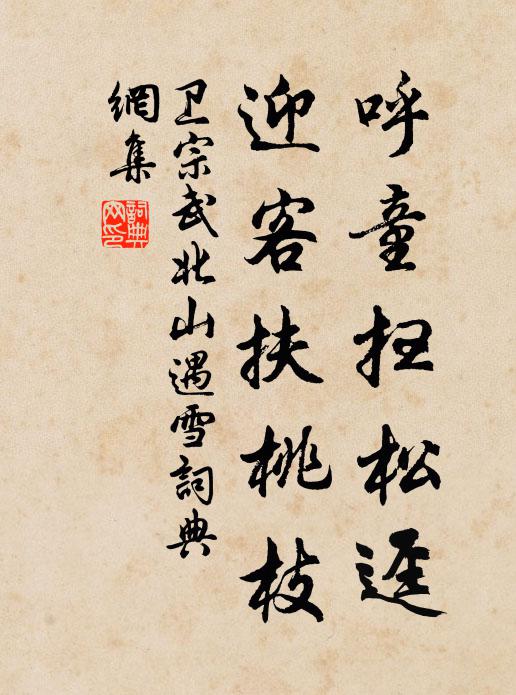 呼童扫松迳
迎客扶桃枝
卫宗武北山遇雪詞典
網集
詞典網印